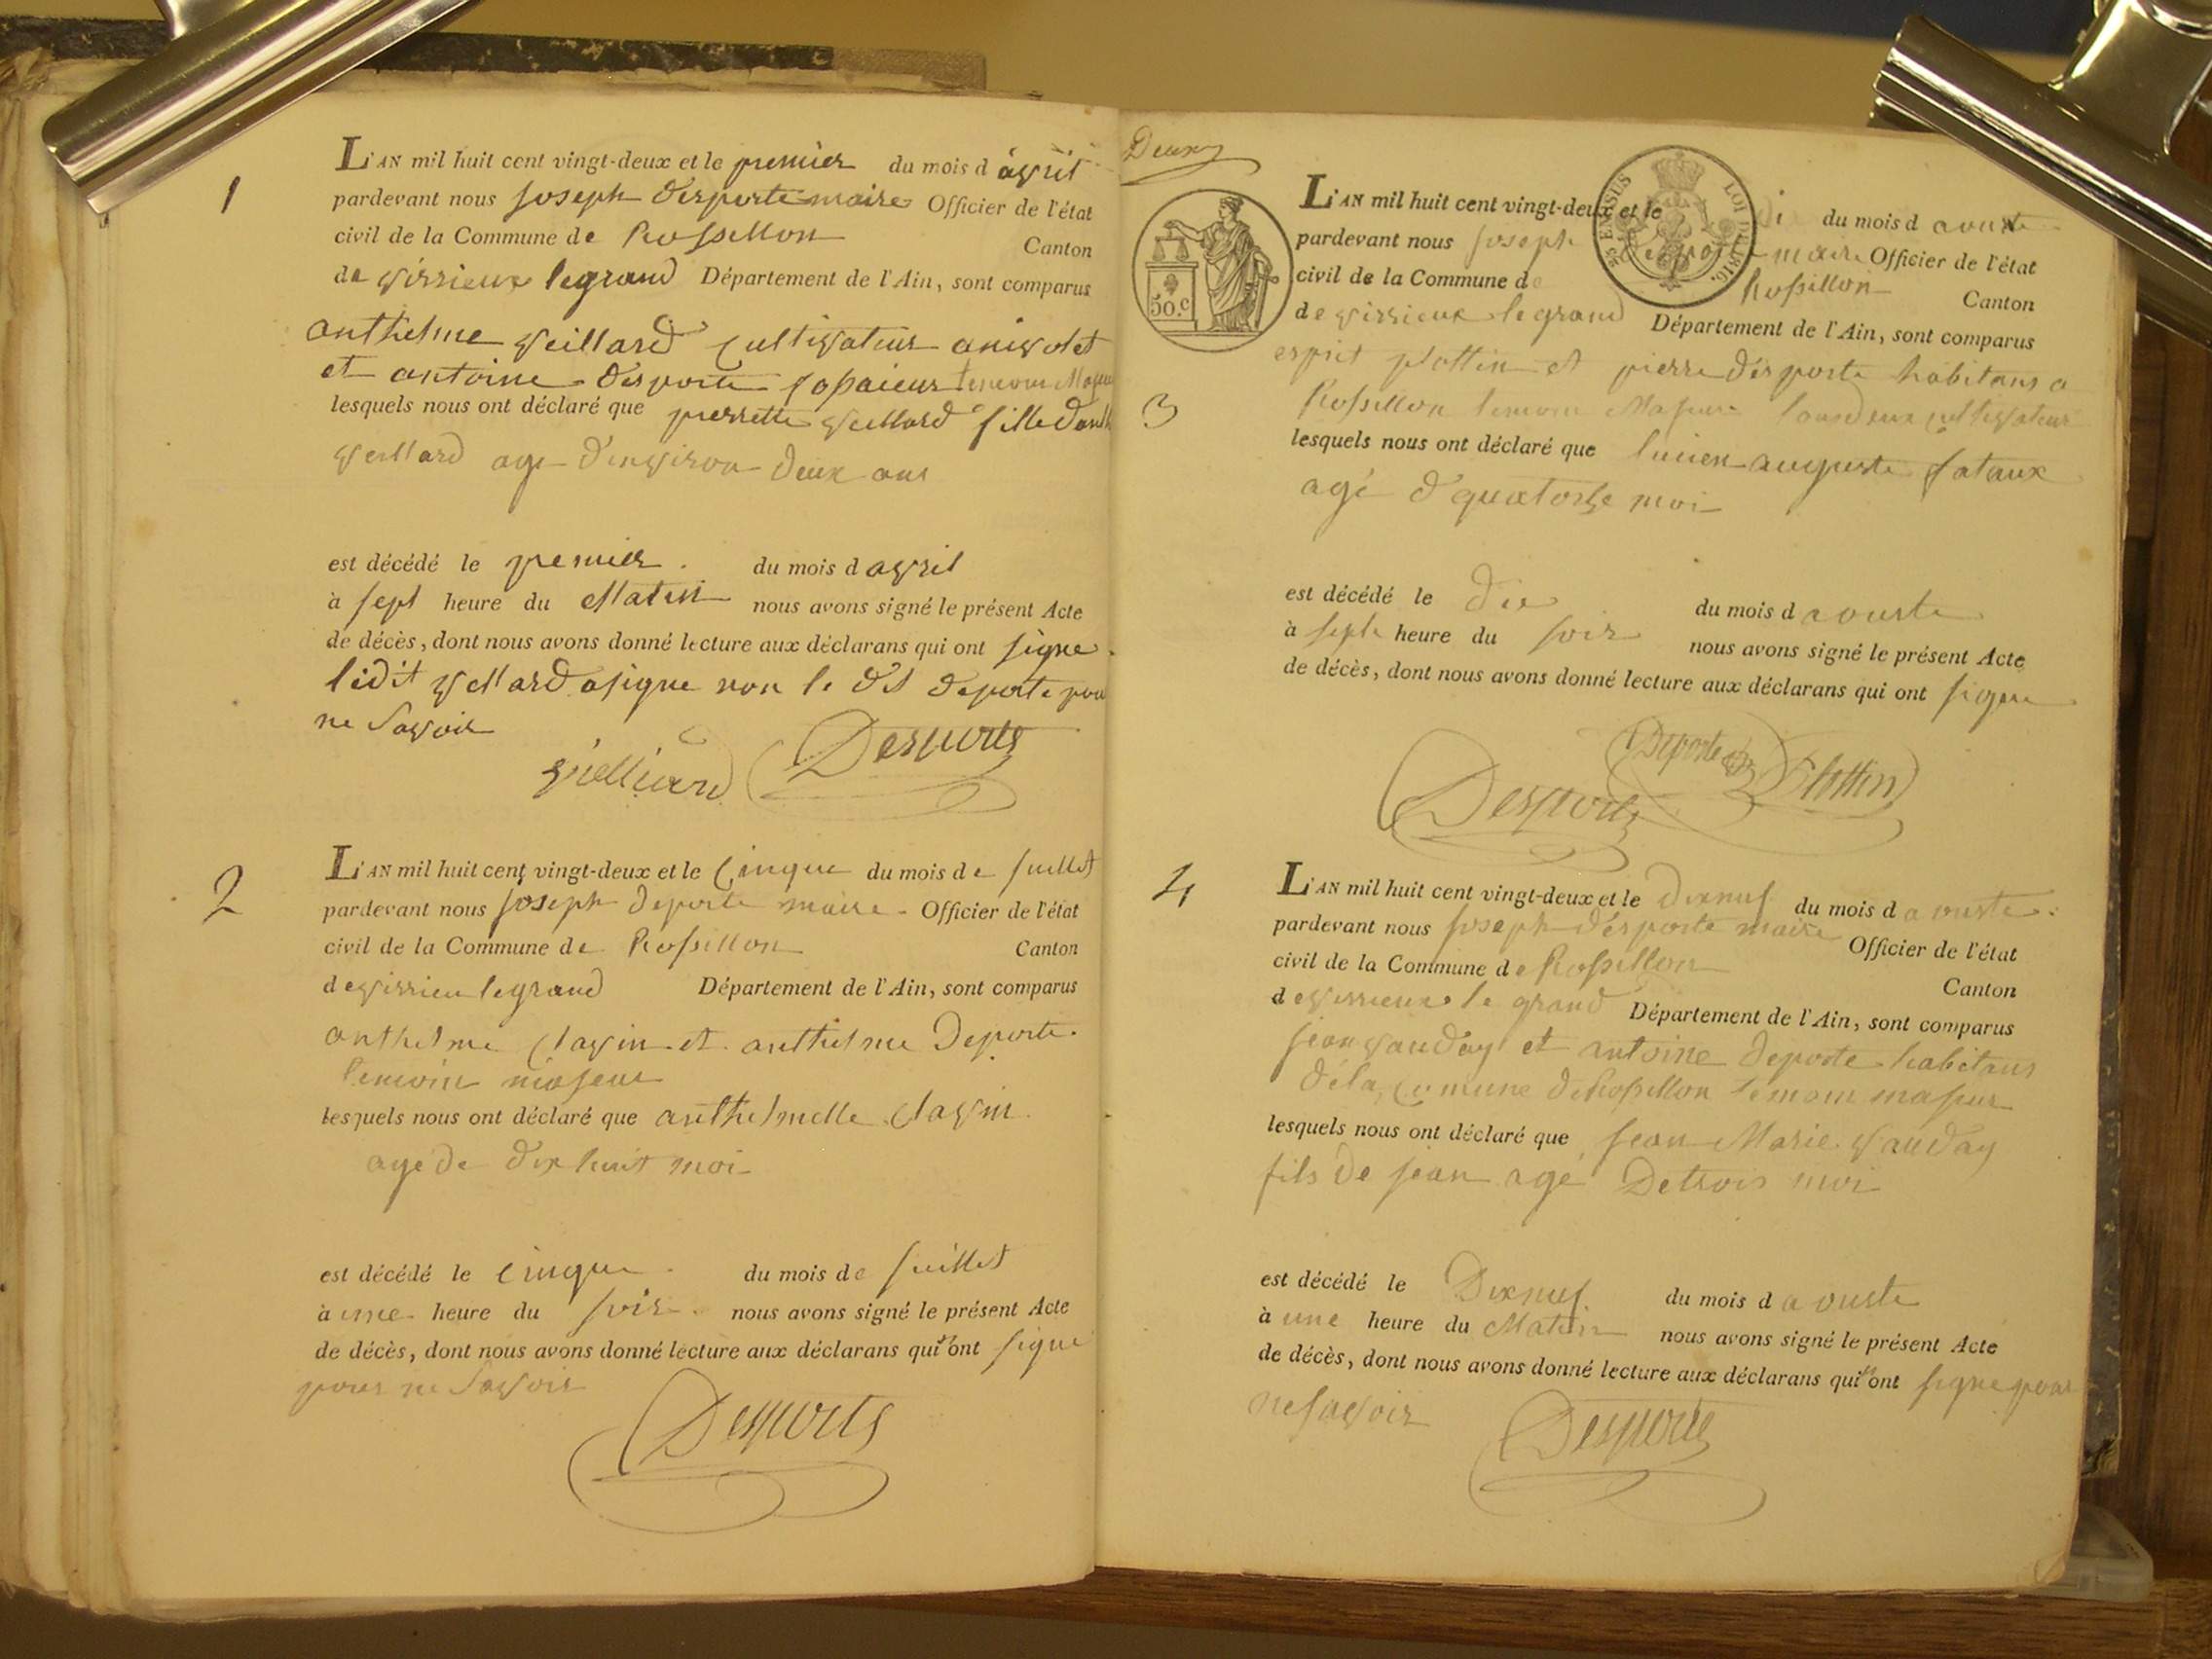 1
L'AN mil huit cent vingt-deux et le premier du mois d avril
pardevant nous joseph desporte maire Officier de l'état
civil de la Commune de Rossillon
Canton
de virieux legrand Département de l'Ain, sont comparus
anthelme veillard cultivateur
et antoine desporte
lesquels nous ont déclaré que pierrette veillard fille d
veillard age d'environ deux ans
est décédé le premier du mois d avril
à sept heure du Matin nous avons signé le présent Acte
de décès, dont nous avons donné lecture aux déclarans qui ont signe
ledit veillard a signe non le dt deporte pou
ne savoir
Desporte
2
L'AN mil huit cent vingt-deux et le cinque du mois de juillet
pardevant nous joseph deporte maire Officier de l'état
civil de la Commune de Rossillon
Canton
de virieu legrand Département de l'Ain, sont comparus
anthelme clavin et anthelme deporte
temoin majeur
lesquels nous ont déclaré que anthelmelle clavin
age de dix huit moi
est décédé le cinque du mois de juillet
à une heure du soir nous avons signé le présent Acte
de décès, dont nous avons donné lecture aux déclarans qui n'ont signe
pour ne savoir
Desporte
Deux
50.c
25 EN SUS LOI DE 1816.
L'AN mil huit cent vingt-deux et le du mois d aouste
pardevant nous joseph desporte maire Officier de l'état
civil de la Commune de Rossillon
Canton
de virieux legrand Département de l'Ain, sont comparus
esprit plottin et pierre desporte habitans a
3
Rossillon temoin Majeur tous deux cultivateur
lesquels nous ont déclaré que lucien auguste
agé d quatorse moi
est décédé le dix du mois d aouste
à septe heure du soir nous avons signé le présent Acte
de décès, dont nous avons donné lecture aux déclarans qui ont signe
Deporte Plottin
Desporte
4
L'AN mil huit cent vingt-deux et le dixneuf du mois d aouste
pardevant nous joseph desporte maire Officier de l'état
civil de la Commune de Rossillon
Canton
de virieux le grand Département de l'Ain, sont comparus
jean vauday et antoine deporte habitans
de la comune de Rossillon temoin majeur
lesquels nous ont déclaré que jean Marie vauday
fils de jean agé de trois moi
est décédé le Dixneuf du mois d aouste
à une heure du Matin nous avons signé le présent Acte
de décès, dont nous avons donné lecture aux déclarans qui n'ont signe pour
ne savoir
Desporte